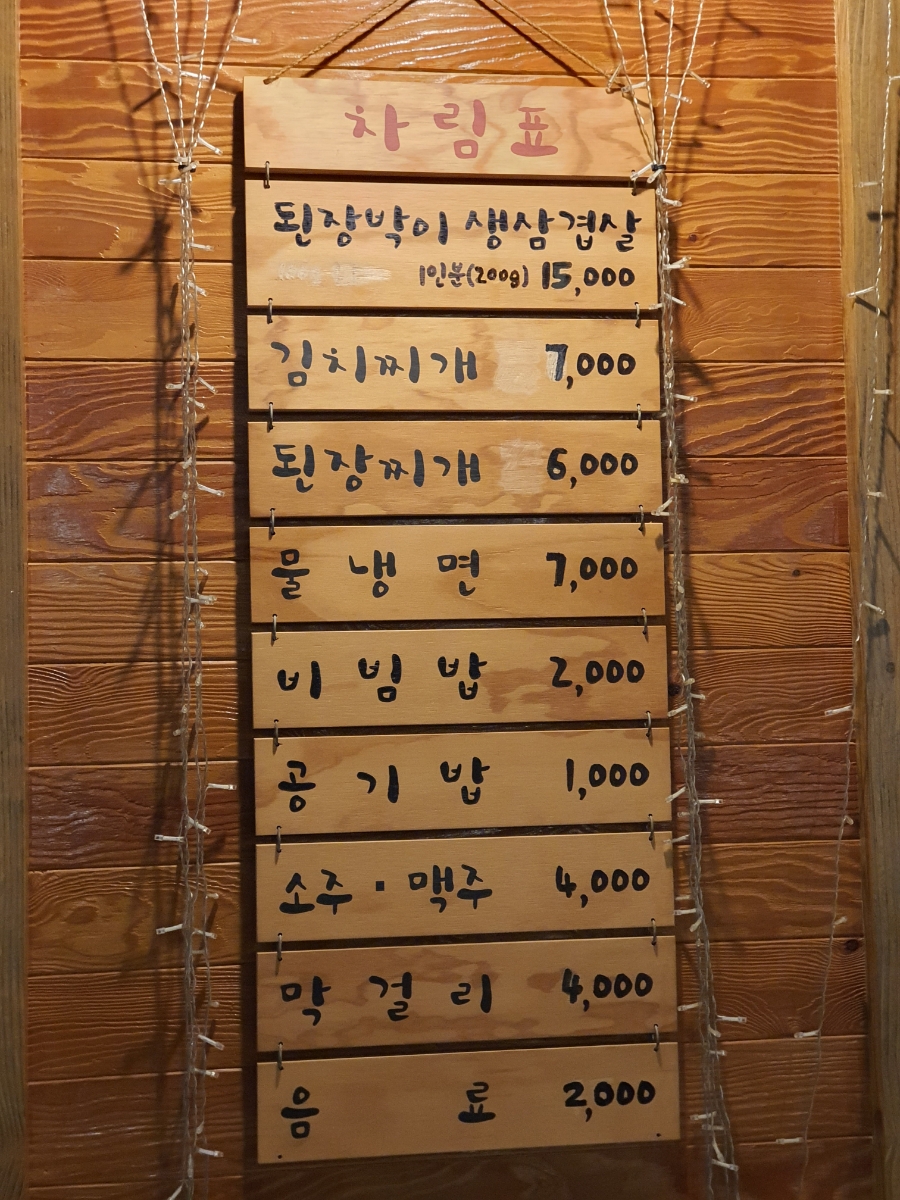 차림표
된장박이 생삼겹살
1인분(200g) 15,000
김치찌개 7,000
된장찌개 6,000
물냉면 7,000
비빔밥 2,000
공기밥 1,000
소주·맥주 4,000
막걸리 4,000
음료 2,000